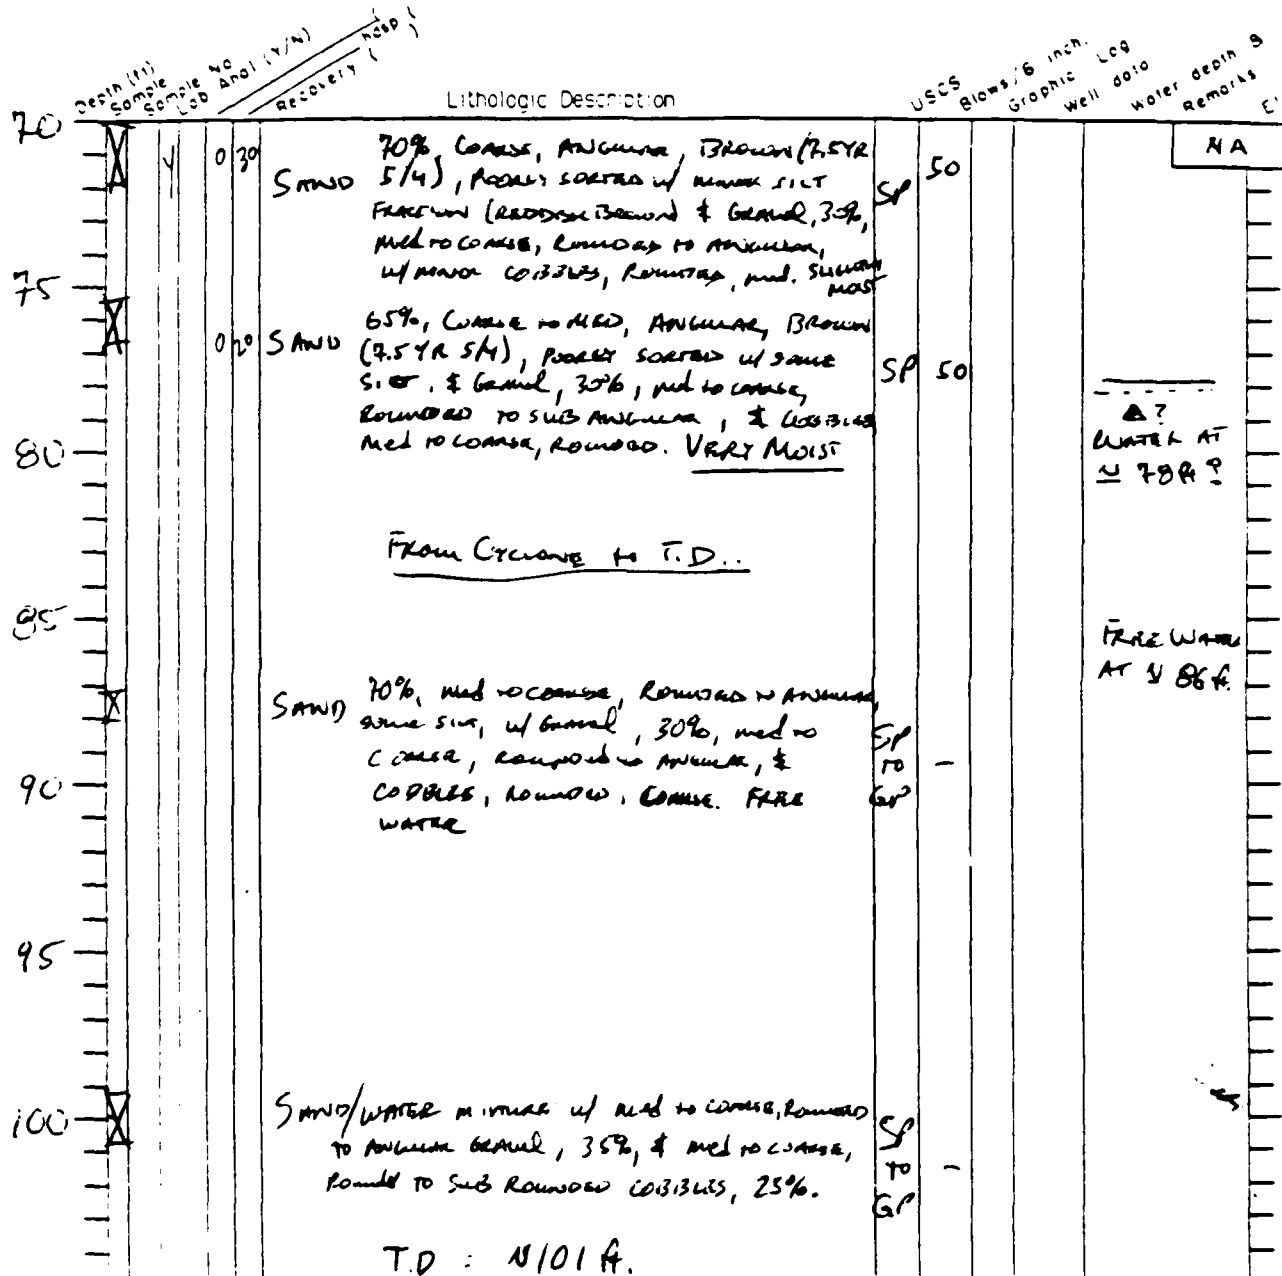 Depth (ft)
Sample
Sample No
Lab Anal (Y/N)
Recovery (
Lithologic Description
USCS
Blows/6 inch.
Graphic Log
Well data
Water depth &
Remarks
70
Y 0 30
SAND 70%, COARSE, ANGULAR, BROWN (7.5YR
5/4), POORLY SORTED w/ MINOR SILT
FRACTION (REDDISH BROWN) & GRAVEL, 30%,
Med to COARSE, ROUNDED TO ANGULAR,
w/ MINOR COBBLES, ROUNDED, med. SLIGHTLY
MOIST
SP 50
NA
75
0 20 SAND 65%, COARSE to MED, ANGULAR, BROWN
(7.5 YR 5/4), POORLY SORTED w/ SOME
SILT, & Gravel, 30%, med to coarse,
ROUNDED TO SUB ANGULAR, & COBBLES
Med TO COARSE, ROUNDED. VERY MOIST
SP 50
?
WATER AT
≃ 78 ft ?
80
FROM CYCLONE to T.D..
85
FREE WATER
AT ≃ 86 ft.
SAND 70%, med to COARSE, ROUNDED to ANGULAR,
some SILT, w/ Gravel, 30%, med to
COARSE, ROUNDED to ANGULAR, &
COBBLES, ROUNDED, COARSE. FREE
WATER
SP
TO -
GP
90
95
100
SAND/WATER MIXTURE w/ med to COARSE, ROUNDED
TO ANGULAR GRAVEL, 35%, & med to COARSE,
Rounded TO SUB ROUNDED COBBLES, 25%.
SP
TO -
GP
T.D : ~101 ft.